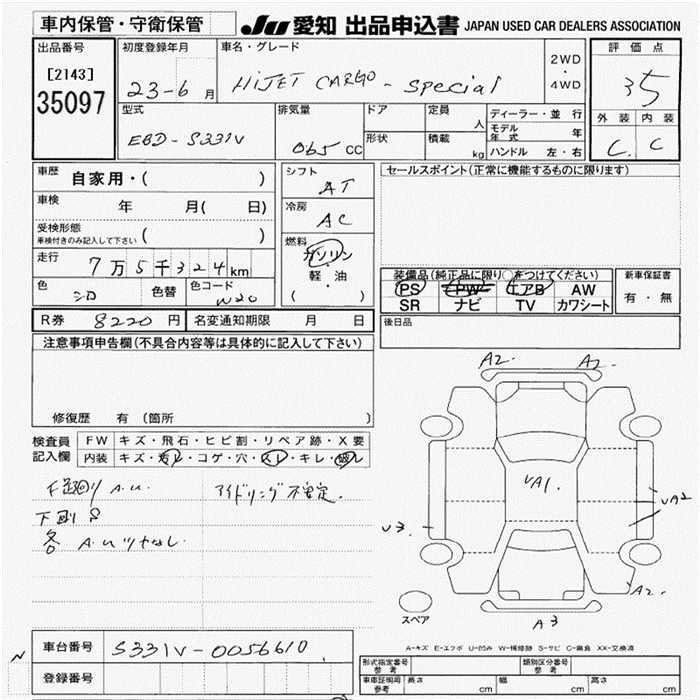 車内保管・守衛保管
JU 愛知 出品申込書 JAPAN USED CAR DEALERS ASSOCIATION
出品番号
[2143]
35097
初度登録年月
23-6月
車名・グレード
HIJET CARGO - Special
2WD
・
4WD
評価点
35
外装 内装
C. C
型式
EBD-S331V
排気量
065 CC
ドア
形状
定員
人
積載
kg
ディーラー・並行
モデル年式 年
ハンドル 左・右
車歴
自家用・( )
車検
年 月( 日)
受検形態
車検付きのみ記入して下さい ( )
走行
7万5千324km
色
シロ
色替
色コード
W20
シフト
AT
冷房
AC
燃料
ガソリン
・
軽・油
( )
セールスポイント(正常に機能するものに限ります)
装備品(純正品に限り○をつけてください)
PS PW エアB AW
SR ナビ TV カワシート
新車保証書
有・無
R券 8220円 名変通知期限 月 日
後日品
注意事項申告欄(不具合内容等は具体的に記入して下さい)
修復歴 有(箇所 )
検査員
記入欄
FW キズ・飛石・ヒビ割・リペア跡・X要
内装 キズ・ ・コゲ・穴・ ・キレ・
A.U.
アイドリング不安定.
下廻り
各 A.U
A2. A2.
UA1.
UA2
U3.
A2.
A3
スペア
A-キズ E-エクボ U-凹み W-補修跡 S-サビ C-腐食 XX-交換済
車台番号 S331V-0056610
登録番号
型式指定番号
参考
類別区分番号
参考
車車証明用
参考
長さ cm
幅 cm
高さ cm